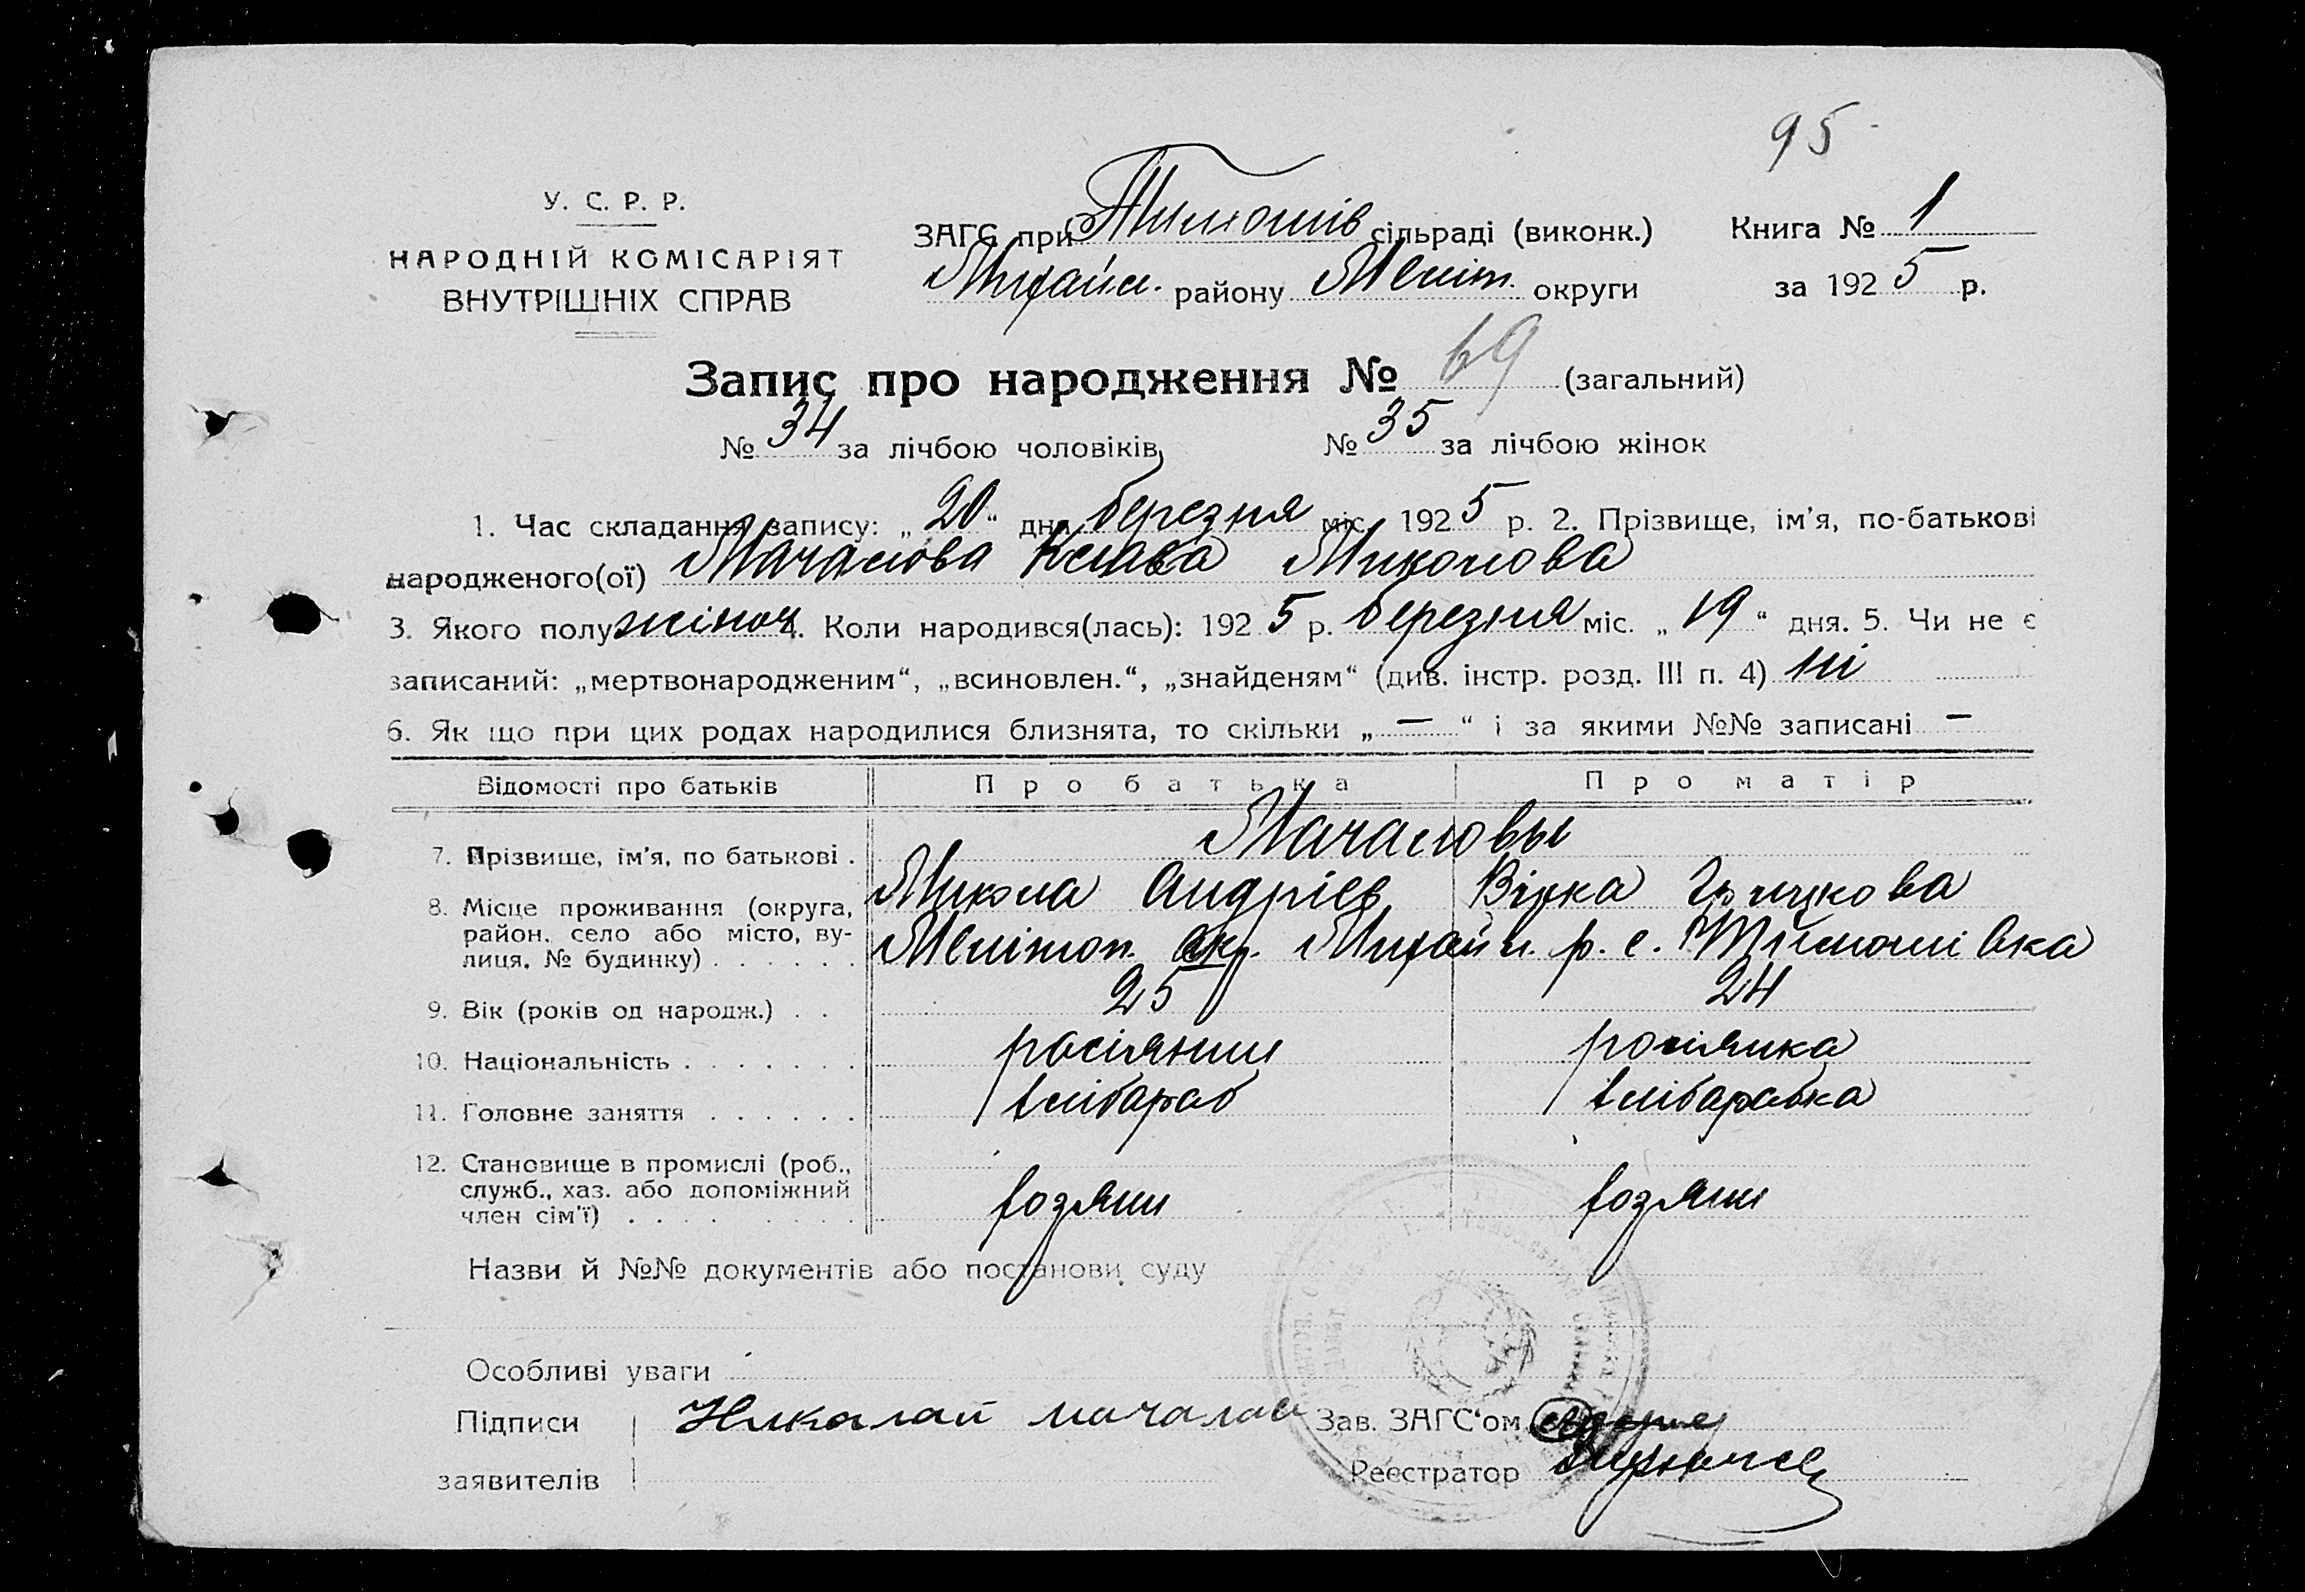 95
У. С. Р. Р.
НАРОДНІЙ КОМІСАРІЯТ
ВНУТРІШНІХ СПРАВ
ЗАГС при Тимошів сільраді (виконк.) Книга № 1
Михайл. району Меліт. округи за 1925 р.
Запис про народження № 69 (загальний)
№ 34 за лічбою чоловіків № 35 за лічбою жінок
1. Час складання запису: „20“ дня березня міс. 1925 р. 2. Прізвище, ім’я, по-батькові
народженого(ої) Мачалова Клава Миколова
3. Якого полу жіноч 4. Коли народився(лась): 1925 р. березня міс. „19“ дня. 5. Чи не є
записаний: „мертвонародженим“, „всиновлен.“, „знайденям“ (див. інстр. розд. III п. 4) ні
6. Як що при цих родах народилися близнята, то скільки „—“ і за якими №№ записані —
Відомості про батьків Про батька Про матір
7. Прізвище, ім’я, по батькові . Мачаловы
Микола Андріев Вірка Грицкова
8. Місце проживання (округа,
район, село або місто, ву-
лиця, № будинку) . . . . . . Мелітоп. окр. Михайл. р. с. Тимошівка
9. Вік (років од народж.) . . 25 24
10. Національність . . . . . . . росіянин росіянка
11. Головне заняття . . . . . . хлібароб хлібаробка
12. Становище в промислі (роб.,
служб., хаз. або допоміжний
член сім’ї) . . . . . . . . хозяин хозяин
Назви й №№ документів або постанови суду
Особливі уваги
Підписи Николай мачалов Зав. ЗАГС‘ом
заявителів Реєстратор